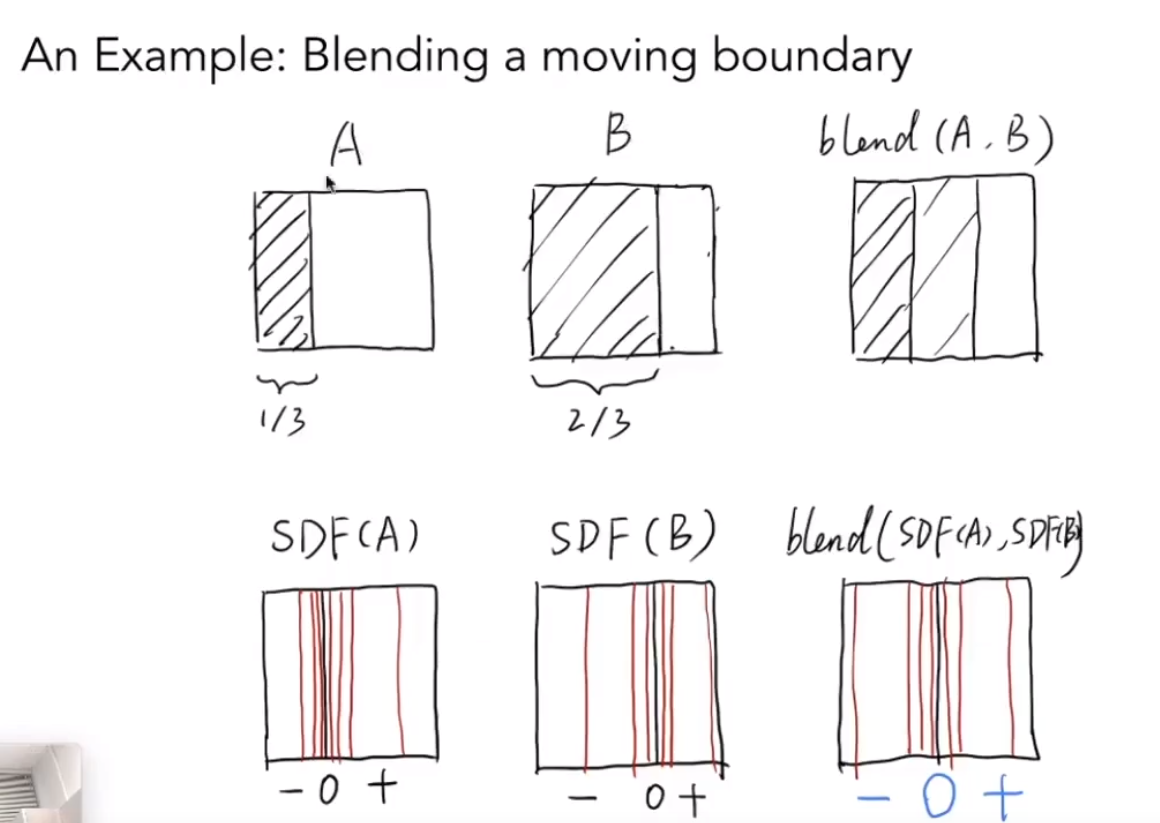 An Example: Blending a moving boundary
A B blend (A, B)
1/3 2/3
SDF(A) SDF(B) blend(SDF(A), SDF(B))
- 0 + - 0 + - 0 +